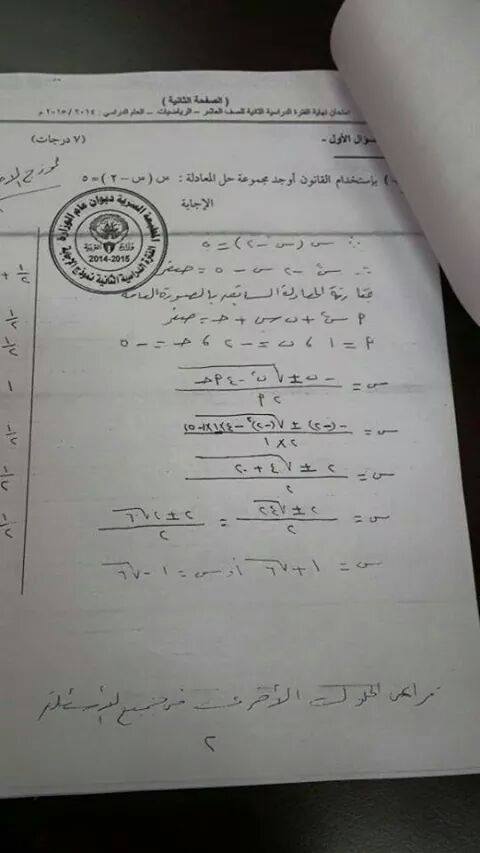 ( الصفحة الثانية )
امتحان نهاية الفترة الدراسية الثانية للصف العاشر – الرياضيات – العام الدراسي : ٢٠١٤ / ٢٠١٥ م
سؤال الأول -
(٧ درجات)
نموذج الإ
) بإستخدام القانون أوجد مجموعة حل المعادلة : س ( س – ٢ ) = ٥
الإجابة
المطبعة السرية ديوان عام الوزارة
2014-2015
الفترة الدراسية الثانية نموذج الإجابة
∵ س ( س – ٢ ) = ٥
∴ س² – ٢ س – ٥ = صفر
١/٢ +
بمقارنة المعادلة السابقة بالصورة العامة
م س² + ب س + جـ = صفر
١/٢
م = ١ ، ب = – ٢ ، جـ = – ٥
١/٢
س = (– ب ± √(ب² – ٤ م جـ)) / ٢ م
١
س = (– (–٢) ± √((–٢)² – ٤ × ١ × (–٥))) / ٢ × ١
١/٢
س = (٢ ± √(٤ + ٢٠)) / ٢
١/٢
س = (٢ ± √٢٤) / ٢ = (٢ ± ٢√٦) / ٢
١/٢
س = ١ + √٦ أو س = ١ – √٦
تراعى الحلول الأخرى في جميع الأسئلة
٢